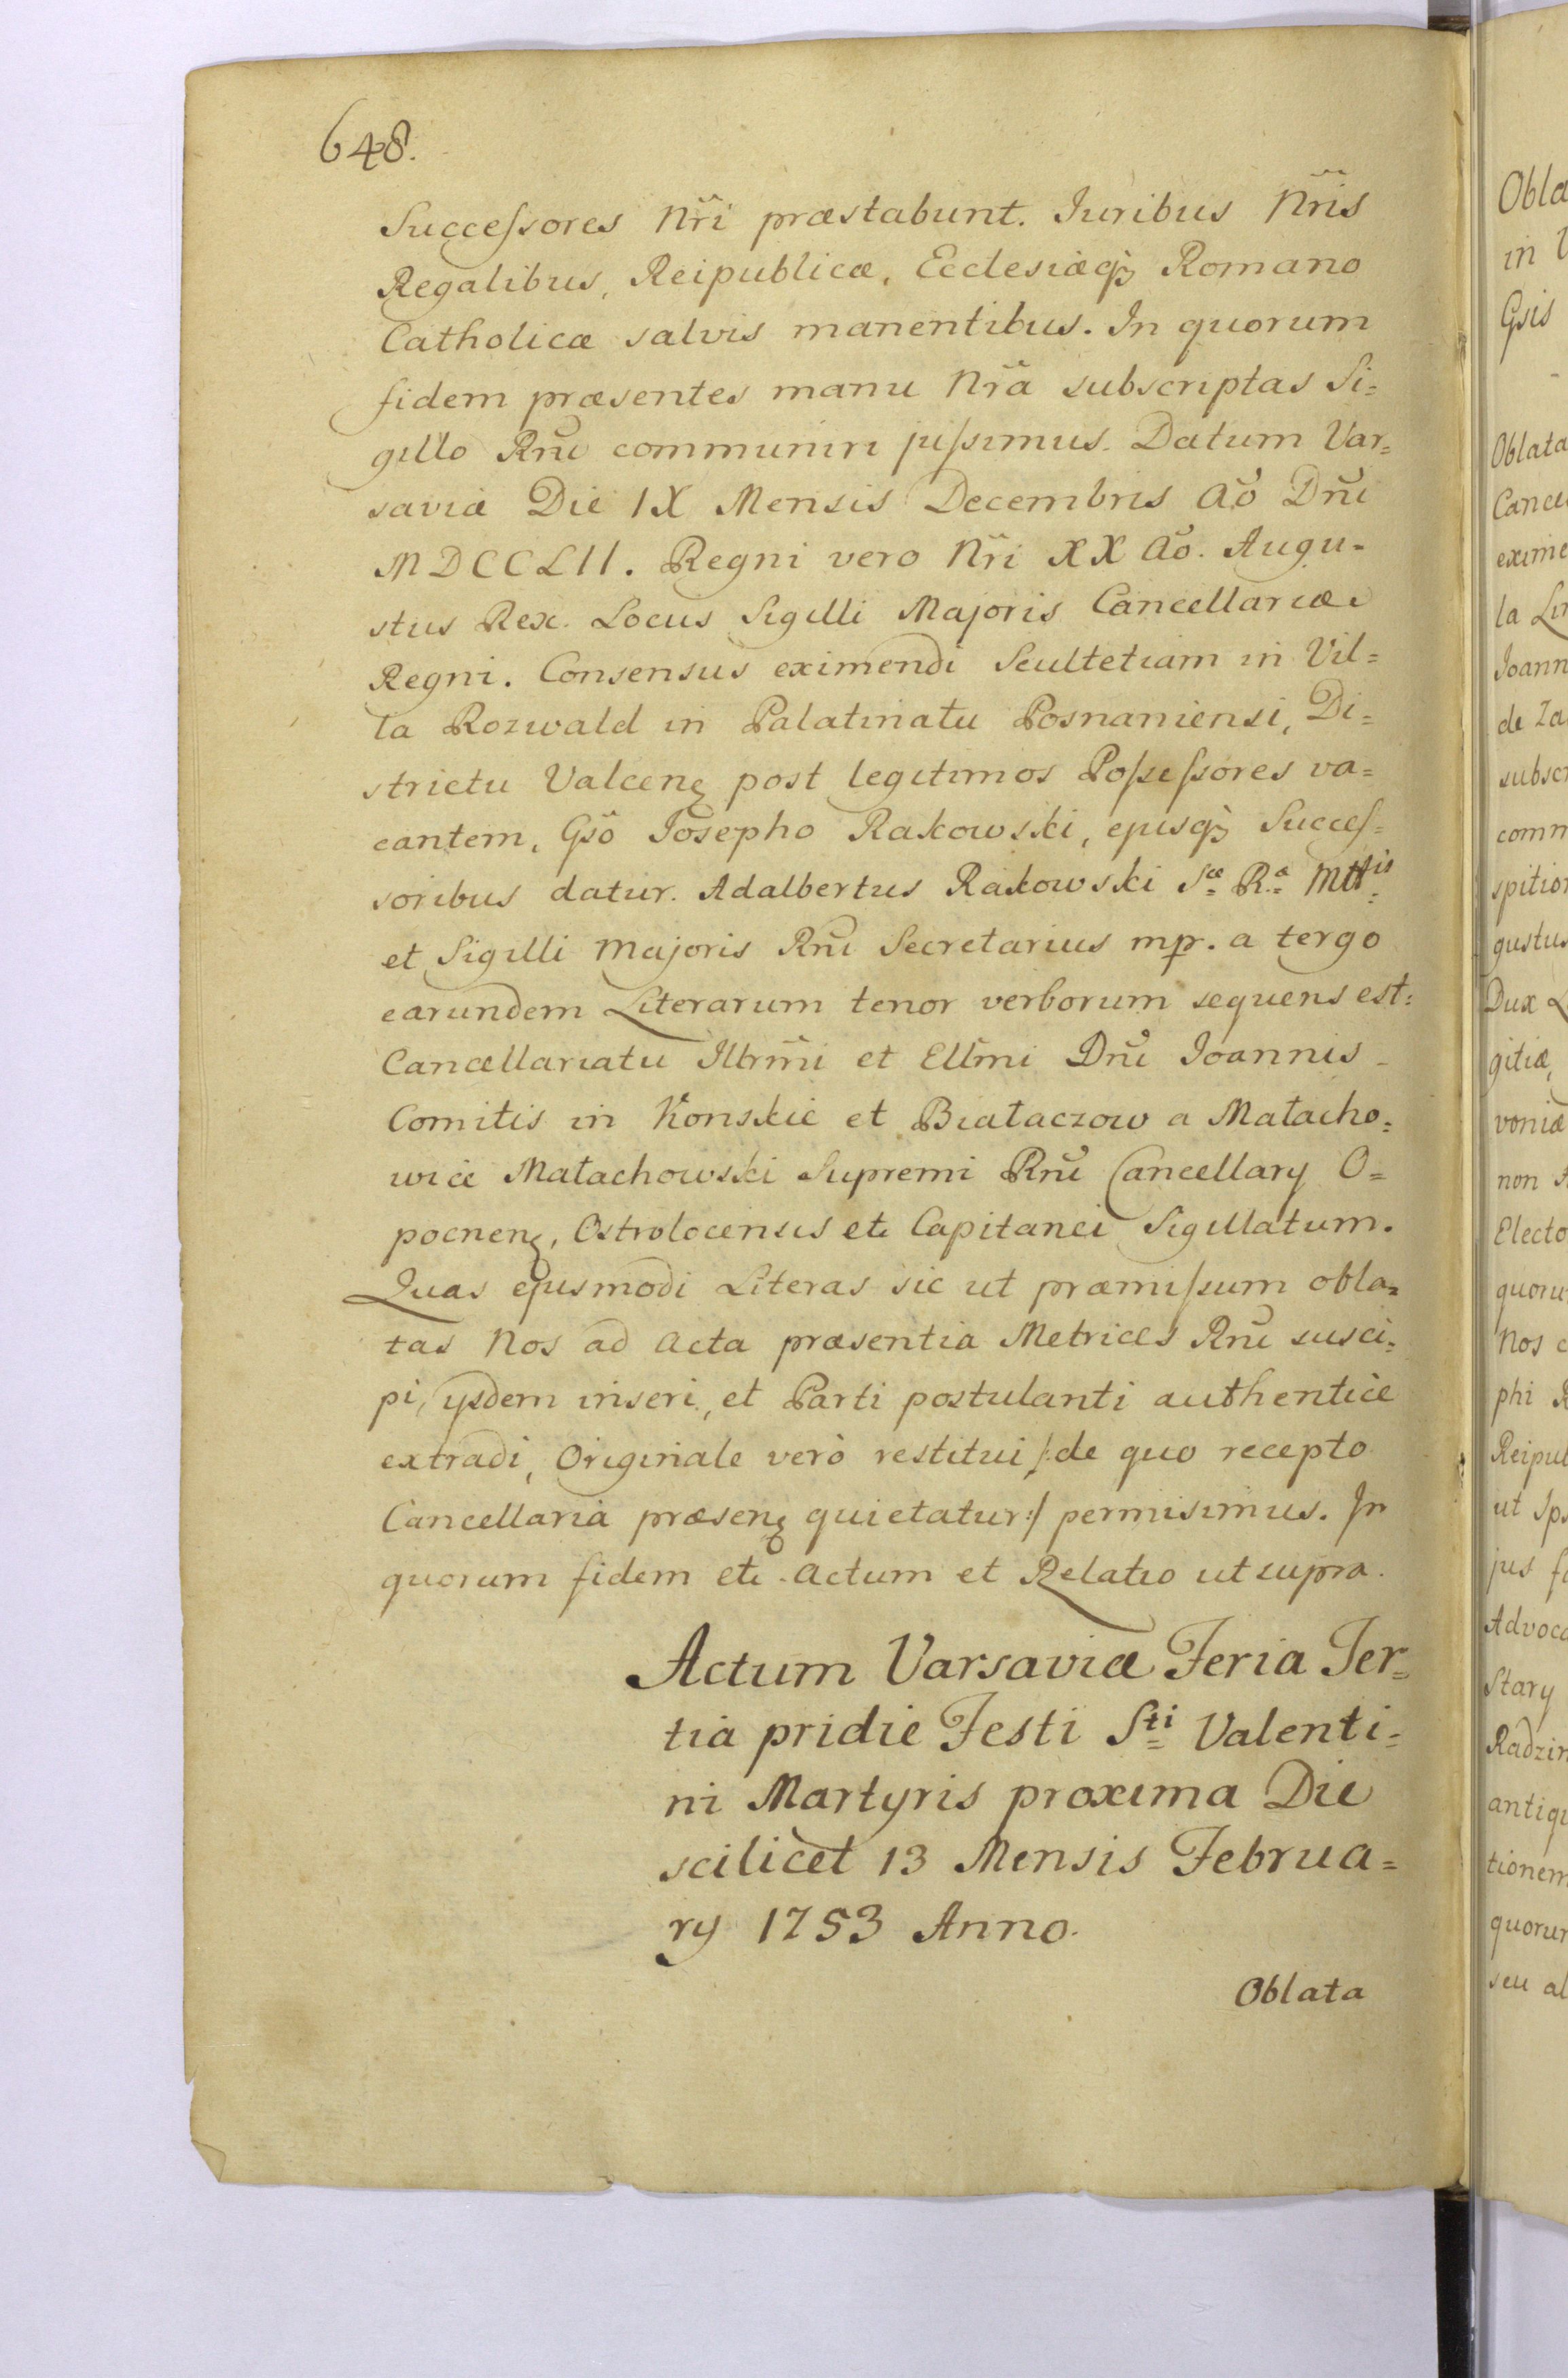 648.
Successores Nr̃i præstabunt. Iuribus Nr̃is
Regalibus, Reipublicæ, Ecclesiæq₃ Romano
Catholicæ salvis manentibus. In quorum
fidem præsentes manu Nr̃a subscriptas Si=
gillo Rñi communiri jussimus. Datum Var=
saviæ Die IX Mensis Decembris Aõ Dñi
MDCCLII. Regni vero Nr̃i XX Aõ. Augu=
stus Rex. Locus Sigilli Majoris Cancellariæ
Regni. Consensus eximendi Scultetiam in Vil=
la Rozwald in Palatinatu Posnaniensi, Di=
strictu Valcenꝭ post legitimos Possessores va=
cantem, Gsõ Josepho Rakowski, ejusq₃ Succes=
soribus datur. Adalbertus Rakowski Sæ Ræ Mttis
et Sigilli Majoris Rñi Secretarius mp. a tergo
earundem Literarum tenor verborum sequens est:
Cancellariatu Illrm̃i et Ellm̃i Dñi Ioannis
Comitis in Konskie et Białaczow a Małacho=
wice Małachowski Supremi Rñi Cancellary O=
pocnenꝭ, Ostrolocensis etc Capitanei Sigillatum.
Quas ejusmodi Literas sic ut præmissum obla=
tas Nos ad Acta præsentia Metrices Rñi susci=
pi, ysdem inseri, et Parti postulanti authentice
extradi, Originale verò restitui /:de quo recepto
Cancellaria præsenꝭ quietatur:/ permisimus. In
quorum fidem etc. Actum et Relatio ut supra.
Actum Varsaviæ Feria Ter=
tia pridie Festi Sti Valenti=
ni Martyris proxima Die
scilicèt 13 Mensis Februa=
ry 1753 Anno.
Oblata
Obla
in
Gsis
Oblata
Cance
exime
la
Joann
de Za
subscr
comm
spitio
gustus
Dux
gitiæ,
voniæ
non
Electo
quoru
Nos
phi
Reipub
ut
jus
Advoca
Stary
Radzin
antiqu
tionem
quorum
seu al